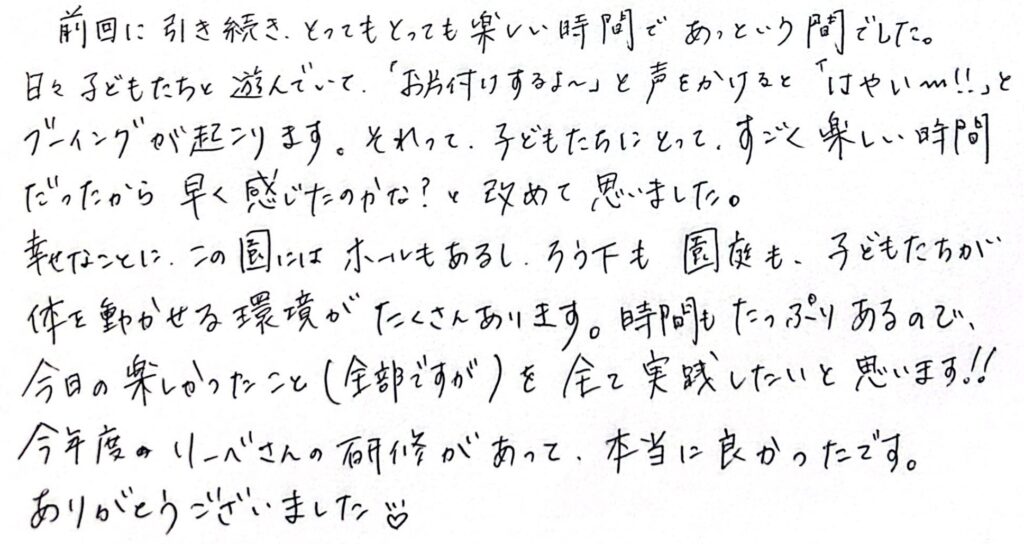 前回に引き続き、とってもとっても楽しい時間であっという間でした。
日々子どもたちと遊んでいて、「お片付けするよ～」と声をかけると「はやい～!!」と
ブーイングが起こります。それって、子どもたちにとって、すごく楽しい時間
だったから早く感じたのかな？と改めて思いました。
幸せなことに、この園にはホールもあるし、ろう下も園庭も、子どもたちが
体を動かせる環境がたくさんあります。時間もたっぷりあるので、
今日の楽しかったこと(全部ですが)を全て実践したいと思います!!
今年度のリーベさんの研修があって、本当に良かったです。
ありがとうございました♡